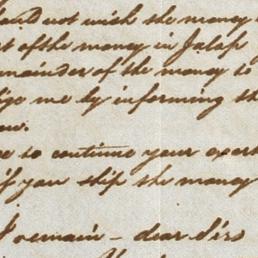 and not wish the money
of the money in Jalap
mainder of the money to
ige me by informing th
ow.
e to continue your exert
if you ship the money
I remain - dear Sirs